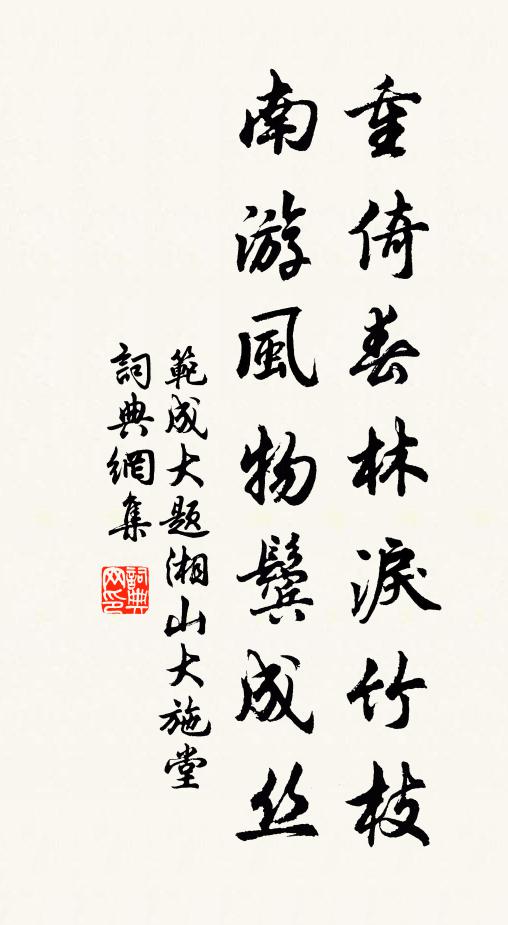 重倚春林淚竹枝
南游風物鬢成丝
範成大题湘山大施堂
詞典網集
詞典网印